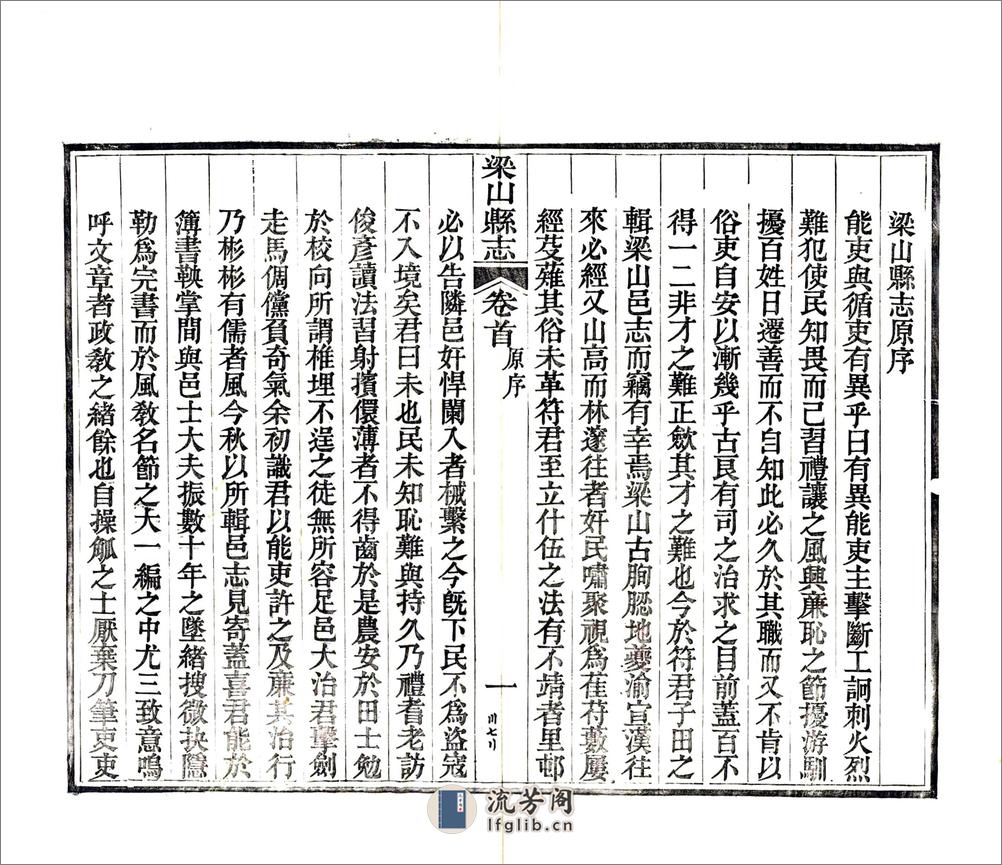 梁山縣志原序
能吏與循吏有異乎曰有異能吏主擊斷工詗刺火烈
難犯使民知畏而已習禮讓之風興廉恥之節擾游馴
擾百姓日遷善而不自知此必久於其職而又不肯以
俗吏自安以漸幾乎古良有司之治求之目前蓋百不
得一二非才之難正歛其才之難也今於符君子田之
輯梁山邑志而竊有幸焉梁山古朐䏰地夔渝宣漢往
來必經又山高而林邃往者奸民嘯聚視為萑苻藪屢
經芟薙其俗未革符君至立什伍之法有不靖者里邨
梁山縣志
卷首
原序
一
必以告隣邑奸悍闌入者械繫之今既下民不為盜寇
不入境矣君曰未也民未知恥難與持久乃禮耆老訪
俊彥讀法習射擯儇薄者不得齒於是農安於田士勉
於校向所謂椎埋不逞之徒無所容足邑大治君擊劍
走馬倜儻負奇氣余初識君以能吏許之及廉其治行
乃彬彬有儒者風今秋以所輯邑志見寄蓋喜君能於
簿書鞅掌間與邑士大夫振數十年之墜緒搜微抉隱
勒為完書而於風敎名節之大一編之中尤三致意嗚
呼文章者政敎之緒餘也自操觚之士厭棄刀筆吏吏
流芳阁
lfglib.cn